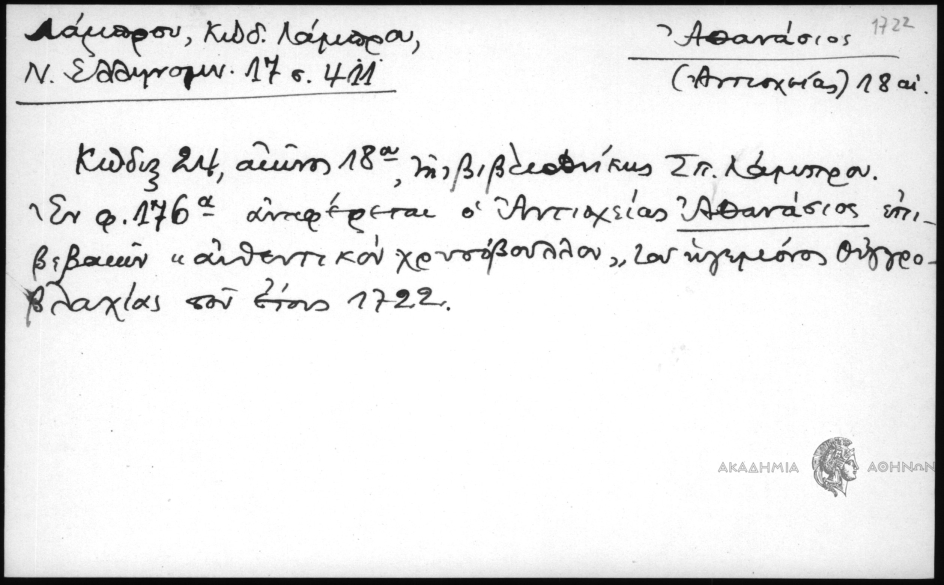 Λάμπρου, Κωδ. Λάμπρου,
Ν. Ελληνομν. 17 σ. 411
Ἀθανάσιος
1722
(Ἀντιοχείας) 18 αἰ.
Κῶδιξ 24, αἰῶνος 18ου, τῆς βιβλιοθήκης Σπ. Λάμπρου.
Ἐν φ. 176α ἀναφέρεται ὁ Ἀντιοχείας Ἀθανάσιος ἐπι-
βεβαιῶν "αὐθεντικὸν χρυσόβουλλον" τοῦ ἡγεμόνος Οὑγγρο-
βλαχίας τοῦ ἔτους 1722.
ΑΚΑΔΗΜΙΑ ΑΘΗΝΩΝ